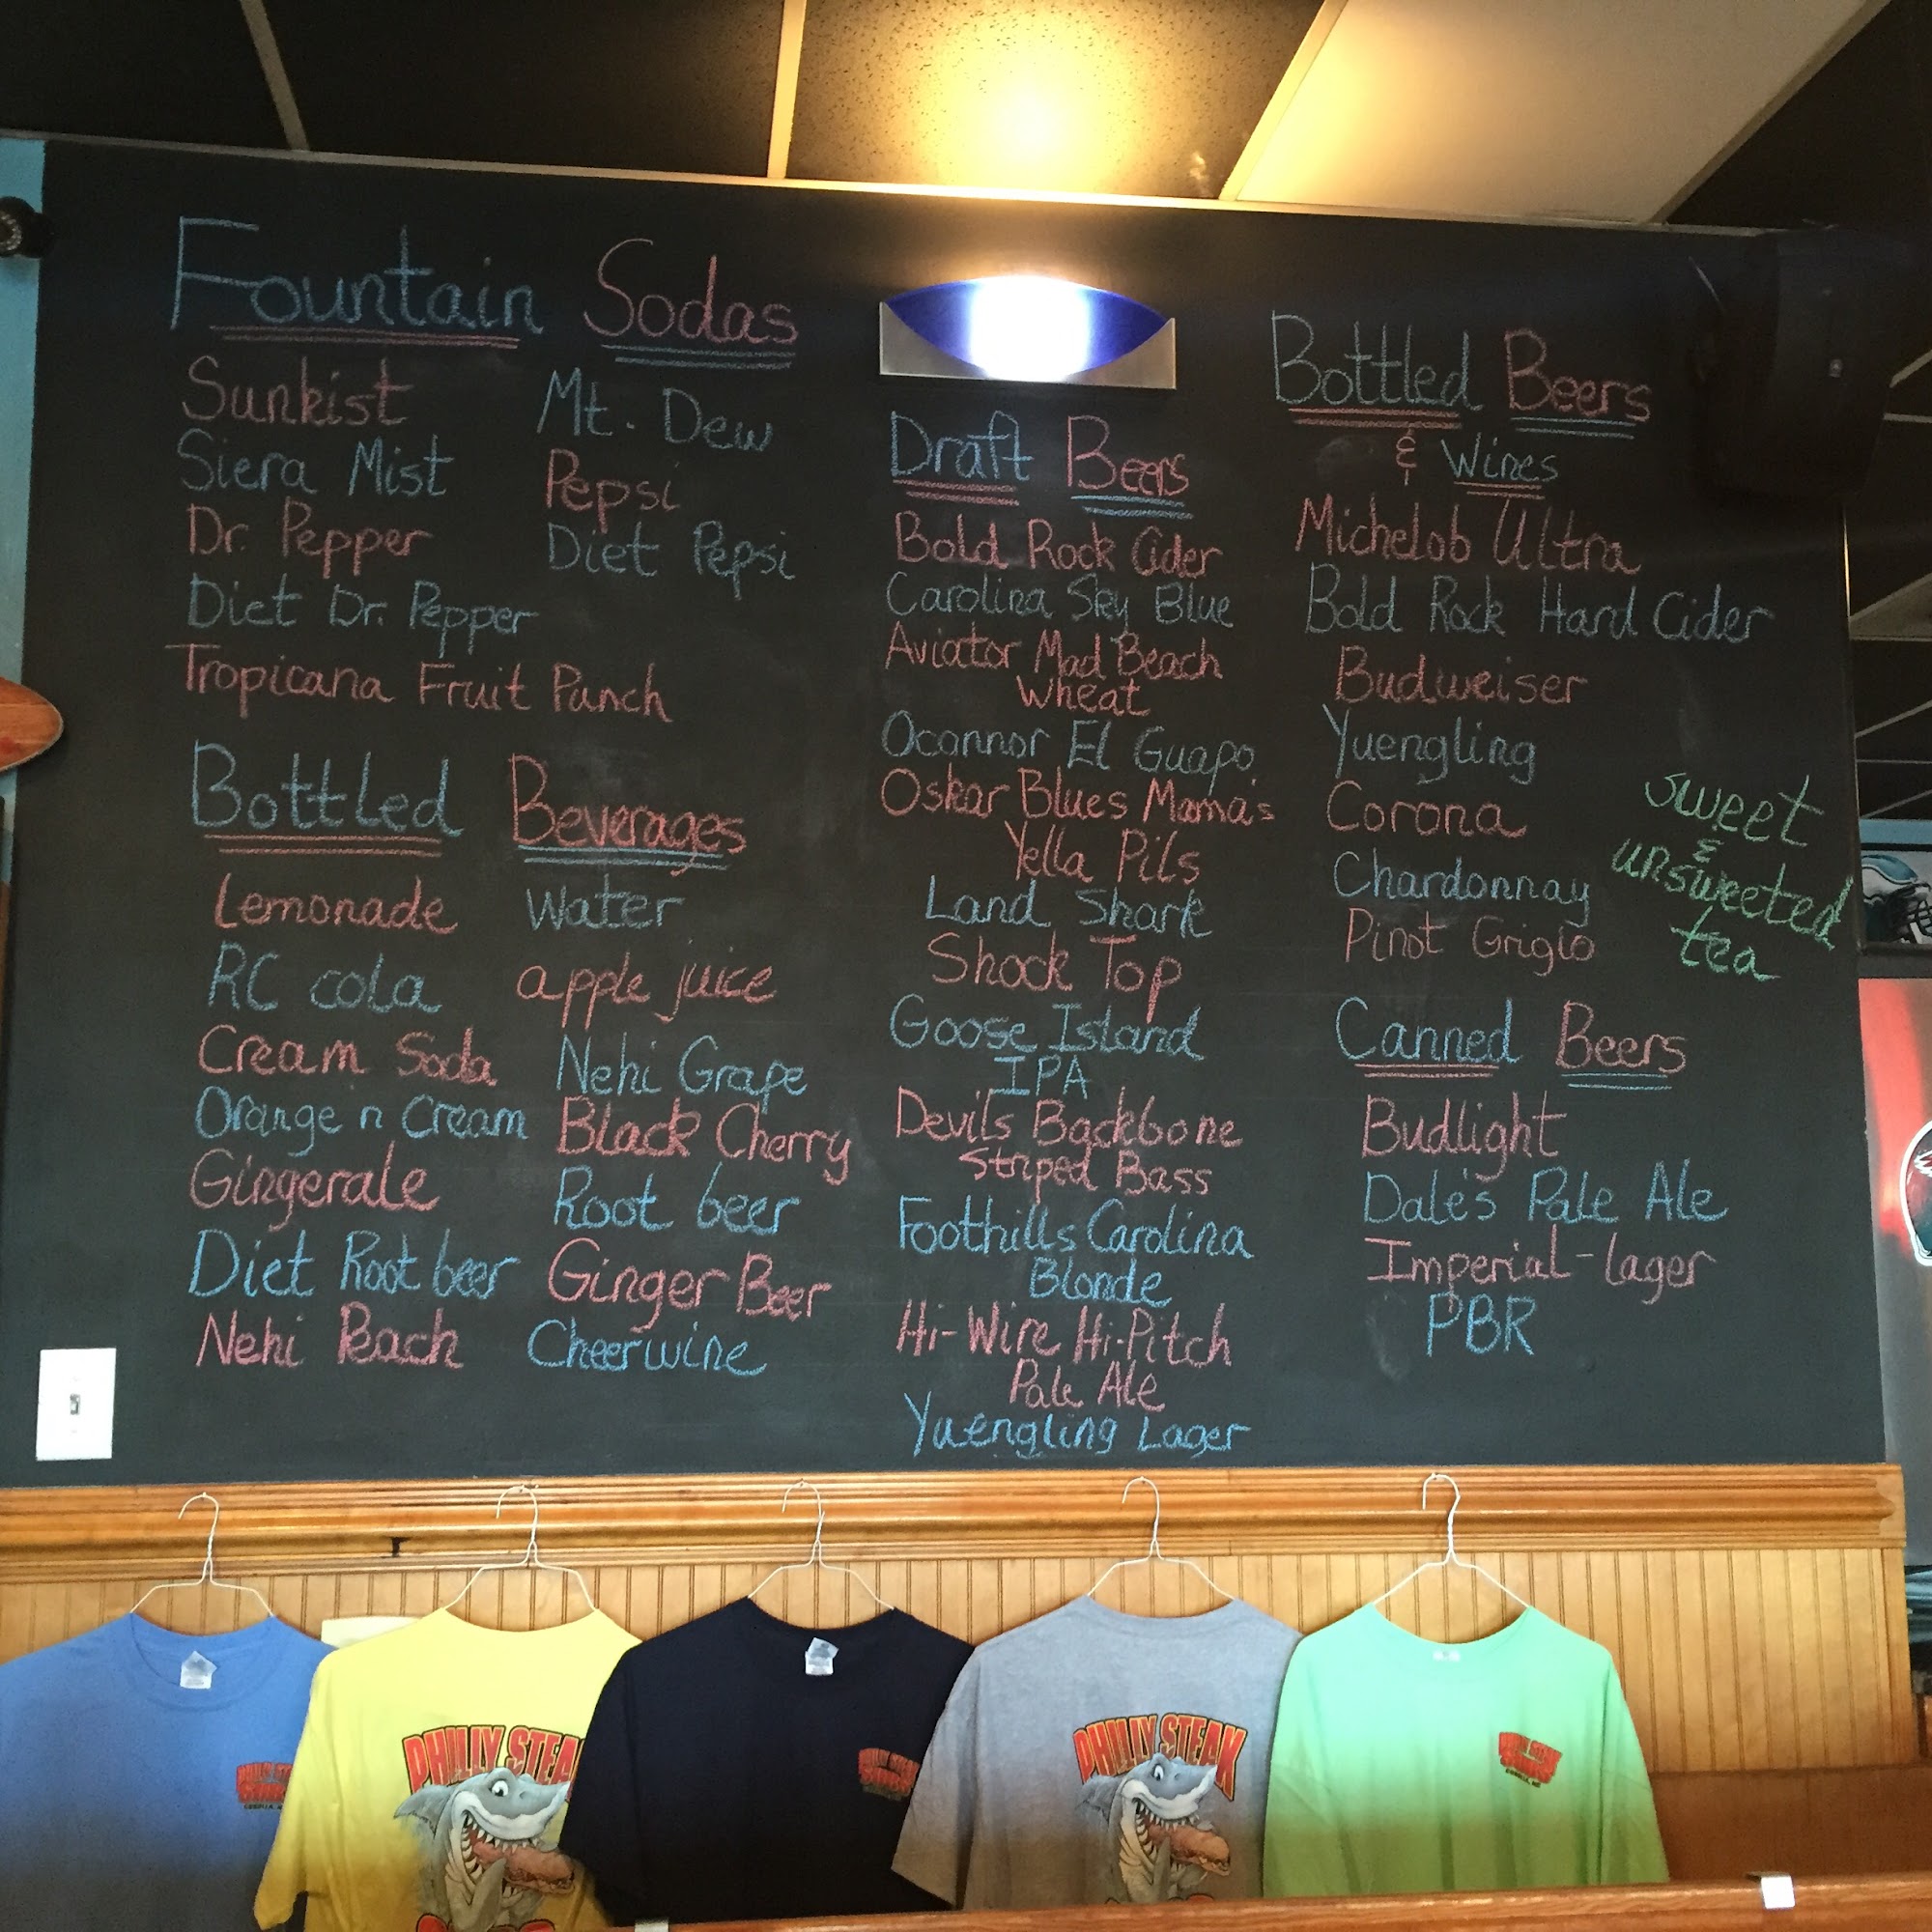 Fountain Sodas
Sunkist
Siera Mist
Dr. Pepper
Diet Dr. Pepper
Tropicana Fruit Punch
Mt. Dew
Pepsi
Diet Pepsi
Bottled Beverages
Lemonade
RC cola
Cream Soda
Orange n Cream
Gingerale
Diet Root beer
Nehi Peach
Water
apple juice
Nehi Grape
Black Cherry
Root beer
Ginger Beer
Cheerwine
Draft Beers
Bold Rock Cider
Carolina Sky Blue
Aviator Mad Beach
Wheat
Oconnor El Guapo
Oskar Blues Mama's
Yella Pils
Land Shark
Shock Top
Goose Island
IPA
Devils Backbone
Striped Bass
Foothills Carolina
Blonde
Hi-Wire Hi-Pitch
Pale Ale
Yuengling Lager
Bottled Beers
& Wines
Michelob Ultra
Bold Rock Hard Cider
Budweiser
Yuengling
Corona
Chardonnay
Pinot Grigio
sweet
&
unsweeted
tea
Canned Beers
Budlight
Dale's Pale Ale
Imperial-lager
PBR
PHILLY STEAK